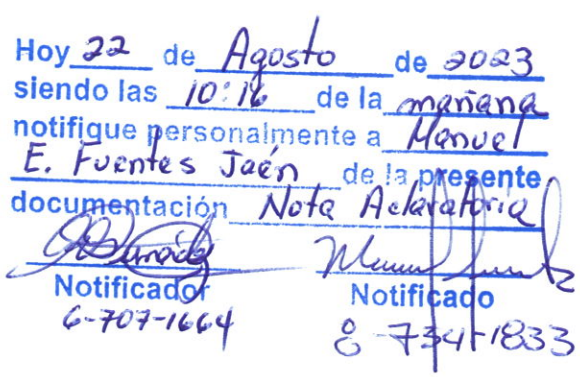 Hoy 22 de Agosto de 2023
siendo las 10:16 de la mañana
notifique personalmente a Manuel
E. Fuentes Jaén de la presente
documentación Nota Aclaratoria
Notificador Notificado
6-707-1664 8-734-1833